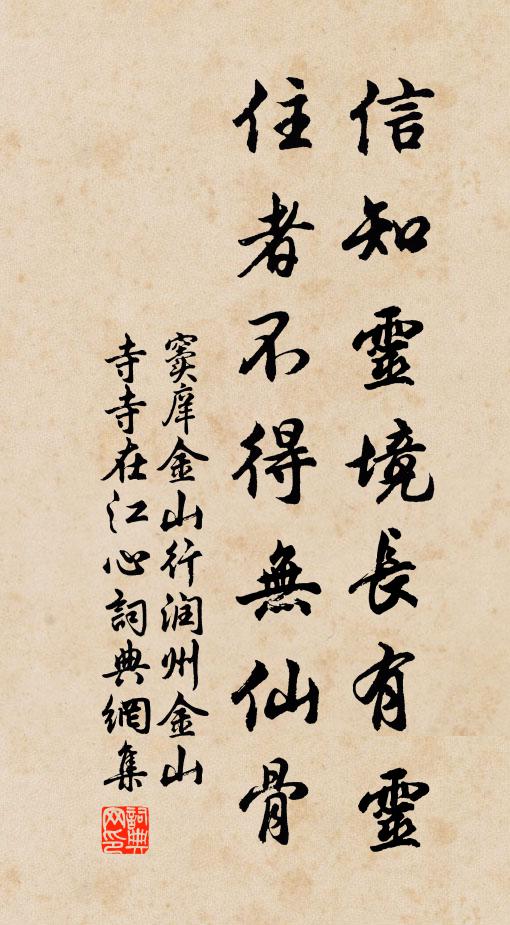 信知靈境長有靈
住者不得無仙骨
窦庠金山行润州金山
寺寺在江心詞典網集
詞典
网印